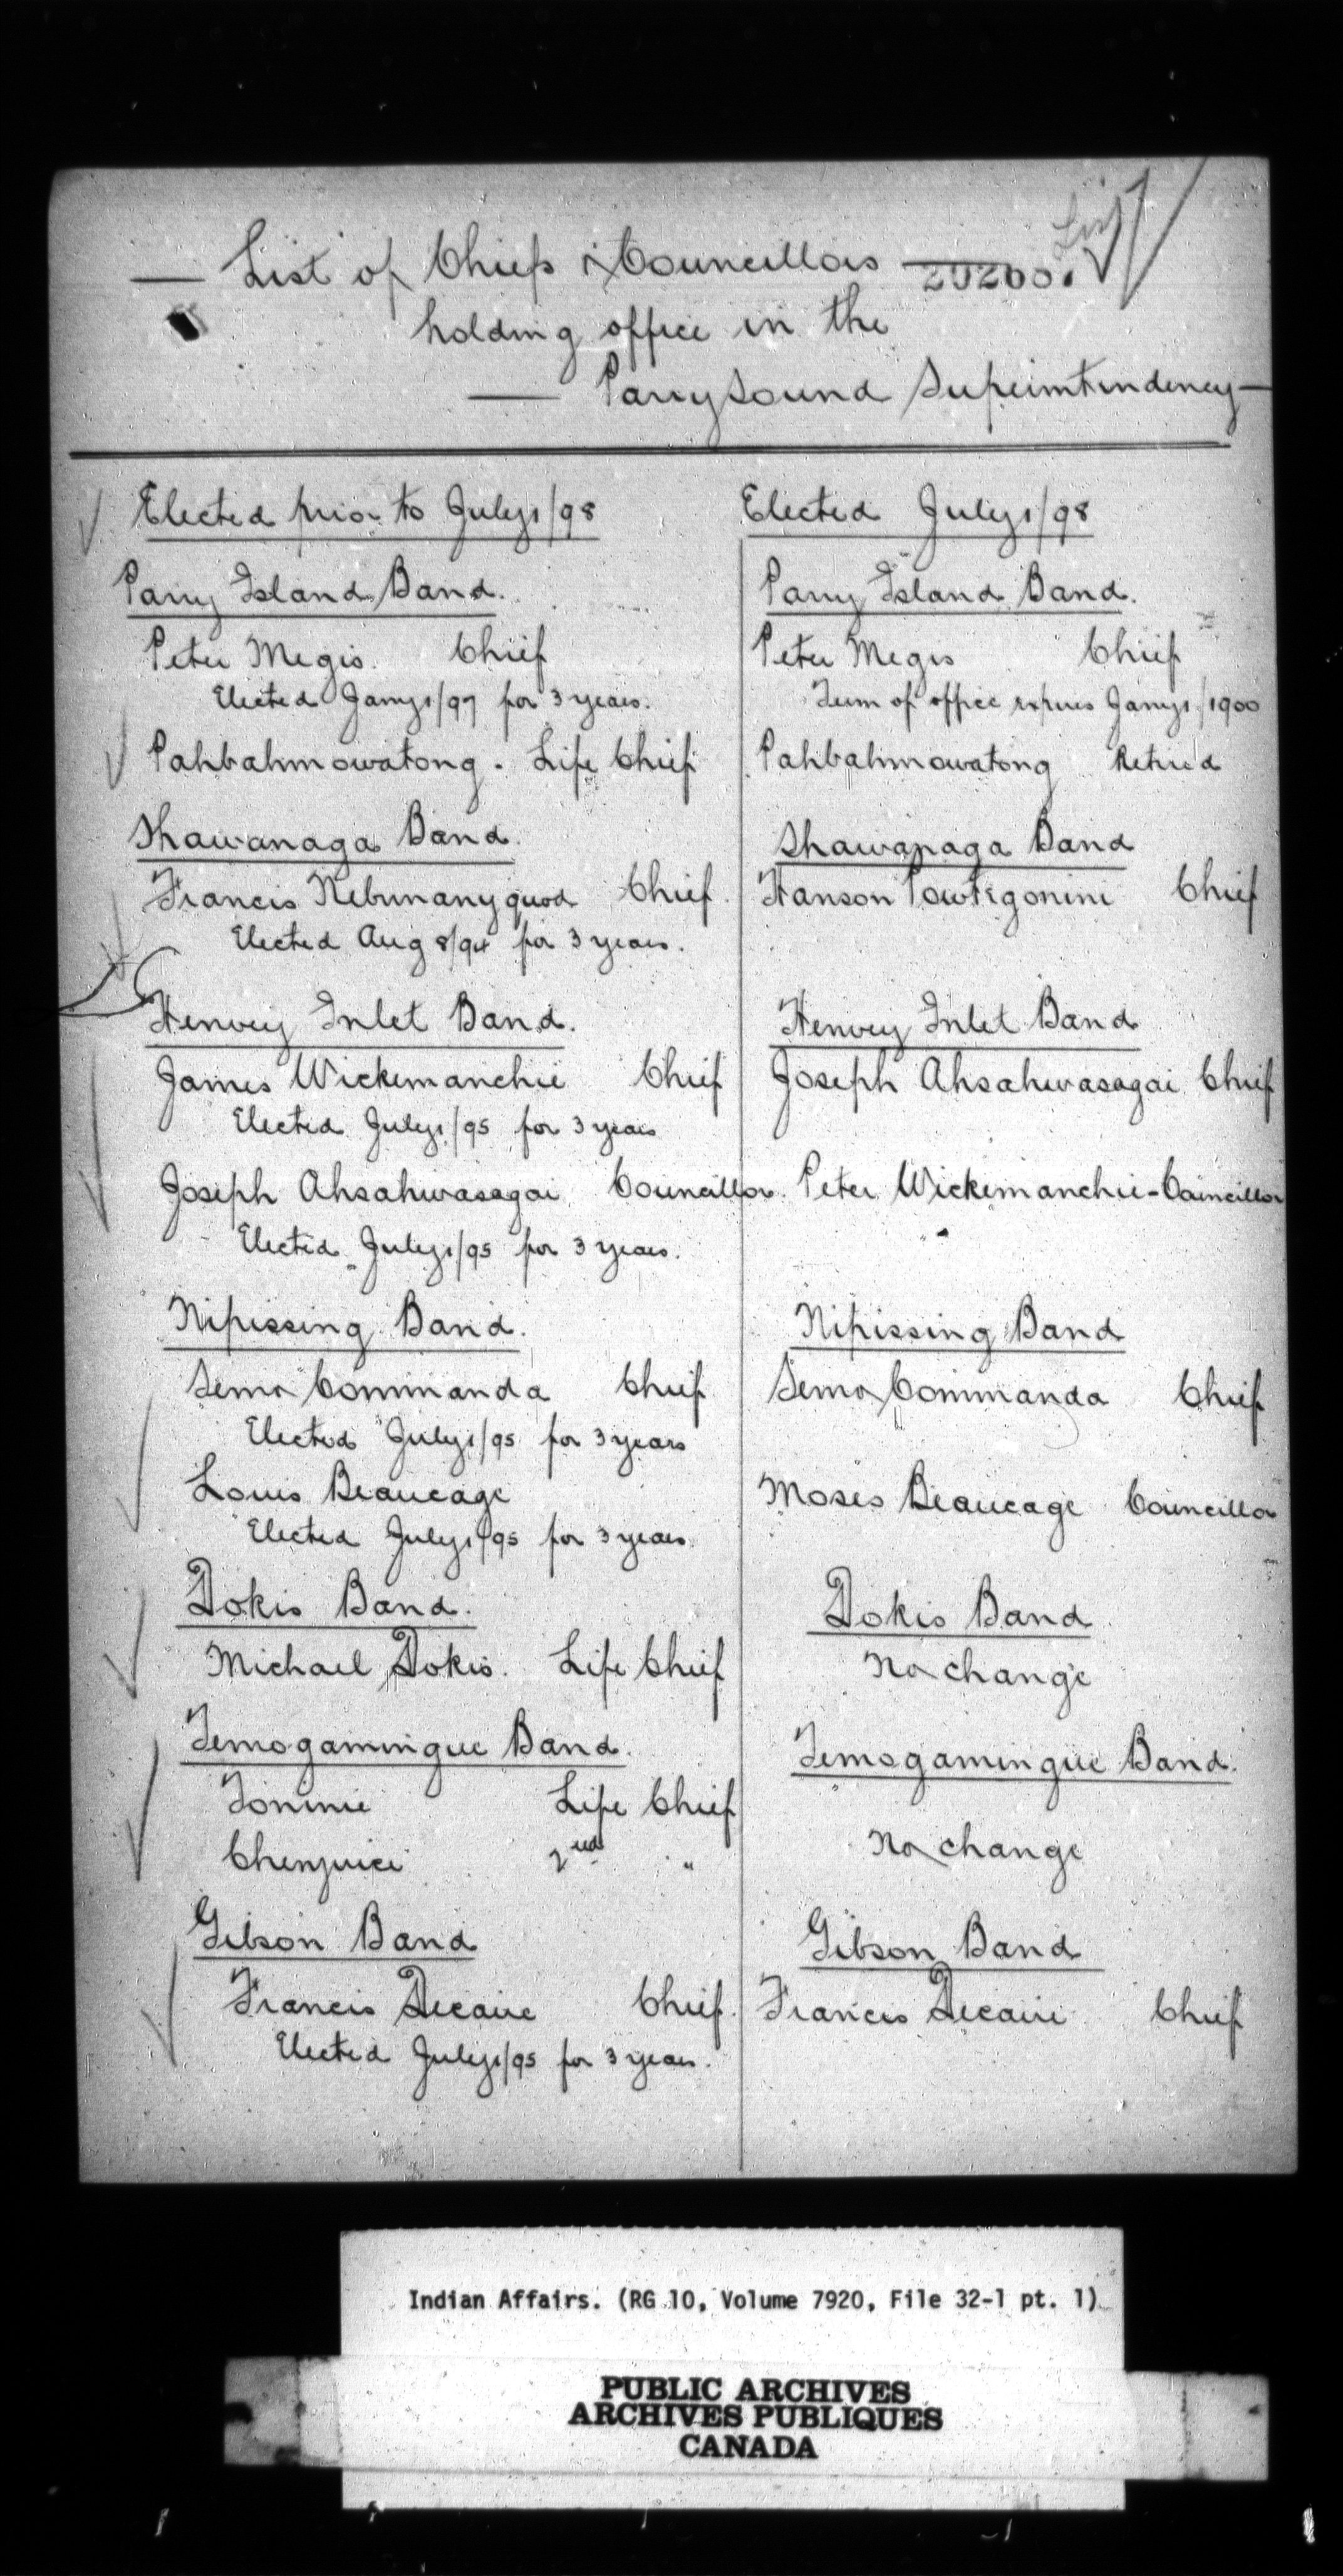 List
— List of Chiefs & Councillors — 20260.
holding office in the
— Parry Sound Superintendency —
Elected prior to July 1/98
Parry Island Band.
Peter Megis. Chief
Elected Jany 1/97 for 3 years.
Pahbahmowatong. Life Chief
Shawanaga Band.
Francis Nebunanyquod Chief.
Elected Aug 8/94 for 3 years.
Henvey Inlet Band.
James Wickemanchie Chief
Elected July 1/95 for 3 years
Joseph Ahsahwasagai Councillor.
Elected July 1/95 for 3 years.
Nipissing Band.
Semo Commanda Chief
Elected July 1/95 for 3 years
Louis Beaucage
Elected July 1/95 for 3 years
Dokis Band.
Michael Dokis. Life Chief
Temogamingue Band.
Tonine Life Chief
2nd "
Gibson Band
Francis Decaire Chief.
Elected July 1/95 for 3 years.
Elected July 1/98
Parry Island Band.
Peter Megis Chief
Term of office expires Jany 1/1900
Pahbahmowatong Retired
Shawanaga Band
Hanson Pawtegonini Chief
Henvey Inlet Band
Joseph Ahsahwasagai Chief
Peter Wickemanchie - Councillor
Nipissing Band
Semo Commanda Chief
Moses Beaucage Councillor
Dokis Band
No change
Temogamingue Band.
No change
Gibson Band
Francis Decaire Chief
Indian Affairs. (RG 10, Volume 7920, File 32-1 pt. 1)
PUBLIC ARCHIVES
ARCHIVES PUBLIQUES
CANADA